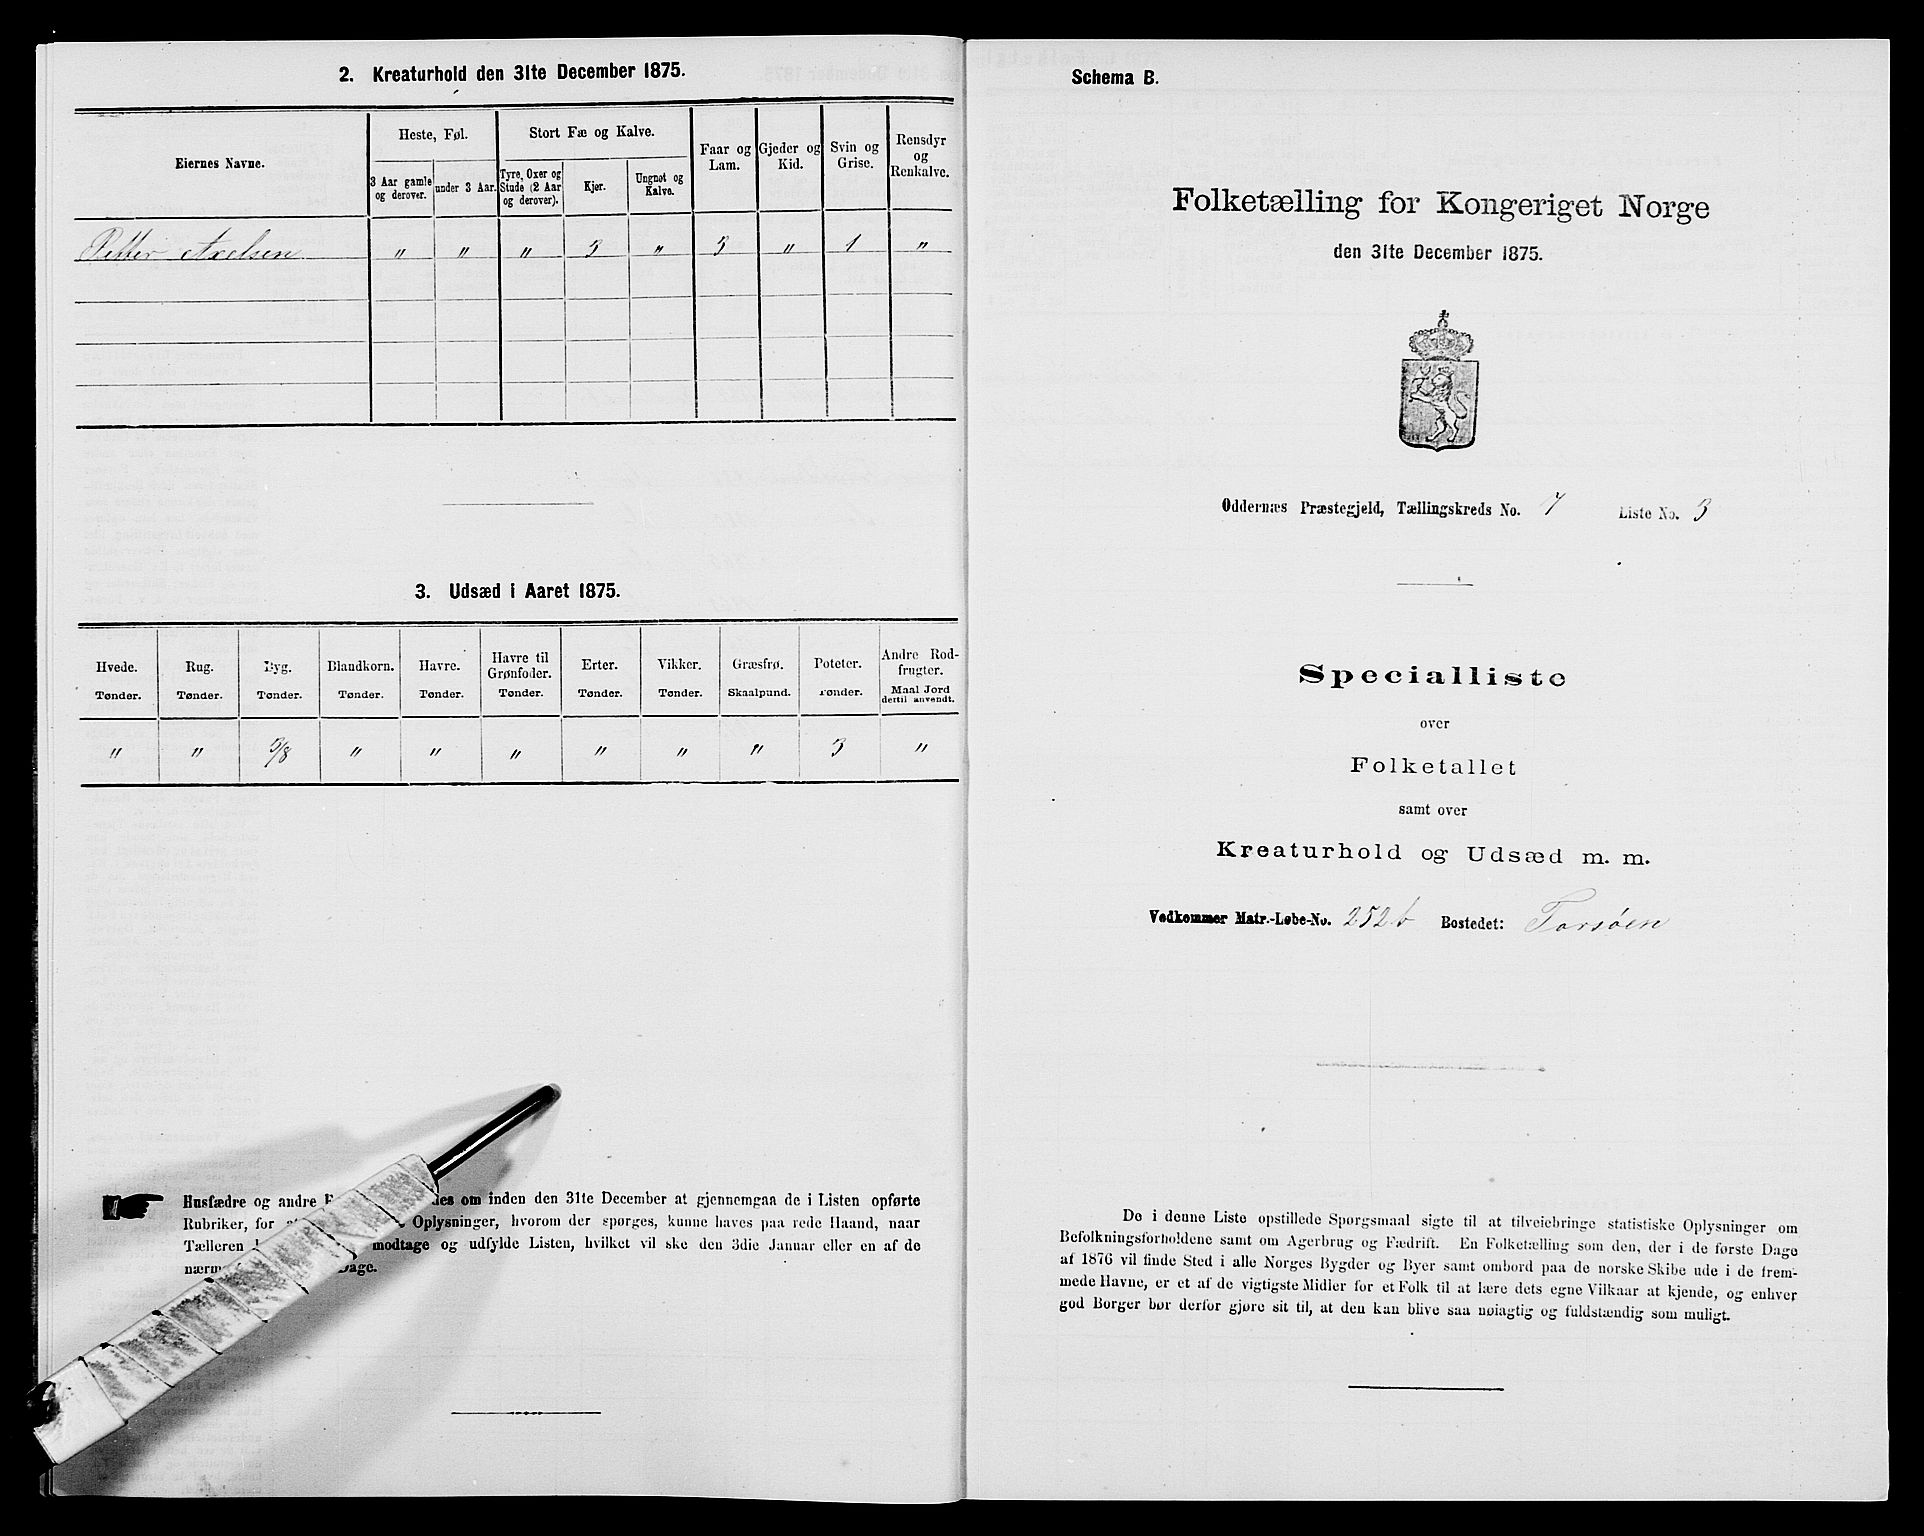 2. Kreaturhold den 31te December 1875.
Eiernes Navne.
Heste, Føl.
Stort Fæ og Kalve.
Faar og Lam.
Gjeder og Kid.
Svin og Grise.
Rensdyr og Renkalve.
3 Aar gamle og derover.
under 3 Aar.
Tyre, Oxer og Stude (2 Aar og derover).
Kjør.
Ungnøt og Kalve.
Petter Axelsen " " " 3 " 3 " 1 "
3. Udsæd i Aaret 1875.
Hvede. Rug. Byg. Blandkorn. Havre. Havre til Grønfoder. Erter. Vikker. Græsfrø. Poteter. Andre Rodfrugter.
Tønder. Tønder. Tønder. Tønder. Tønder. Tønder. Tønder. Tønder. Skaalpund. Tønder. Maal Jord dertil anvendt.
" " 3/8 " " " " " " 3 "
Husfædre og andre om inden den 31te December at gjennemgaa de i Listen opførte
Rubriker, for Oplysninger, hvorom der spørges, kunne haves paa rede Haand, naar
Tælleren modtage og udfylde Listen, hvilket vil ske den 3die Januar eller en af de
Dage.
Schema B.
Folketælling for Kongeriget Norge
den 31te December 1875.
Oddernæs Præstegjeld, Tællingskreds No. 7 Liste No. 3
Specialliste
over
Folketallet
samt over
Kreaturhold og Udsæd m. m.
Vedkommer Matr.-Løbe-No. 252b Bostedet: Torsøen
De i denne Liste opstillede Spørgsmaal sigte til at tilveiebringe statistiske Oplysninger om
Befolkningsforholdene samt om Agerbrug og Fædrift. En Folketælling som den, der i de første Dage
af 1876 vil finde Sted i alle Norges Bygder og Byer samt ombord paa de norske Skibe ude i de frem-
mede Havne, er et af de vigtigste Midler for et Folk til at lære dets egne Vilkaar at kjende, og enhver
god Borger bør derfor gjøre sit til, at den kan blive saa nøiagtig og fuldstændig som muligt.